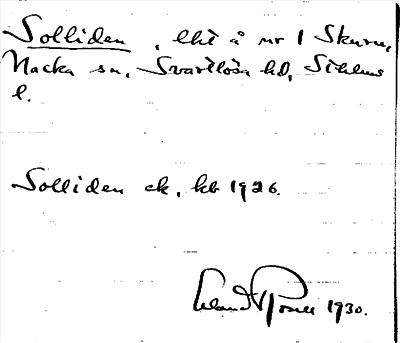 Solliden, lht å nr 1 Skuru,
Nacka sn, Svartlösa hd, Sthlms
l.
Solliden ek, kb 1926.
Erland Rosell 1930.